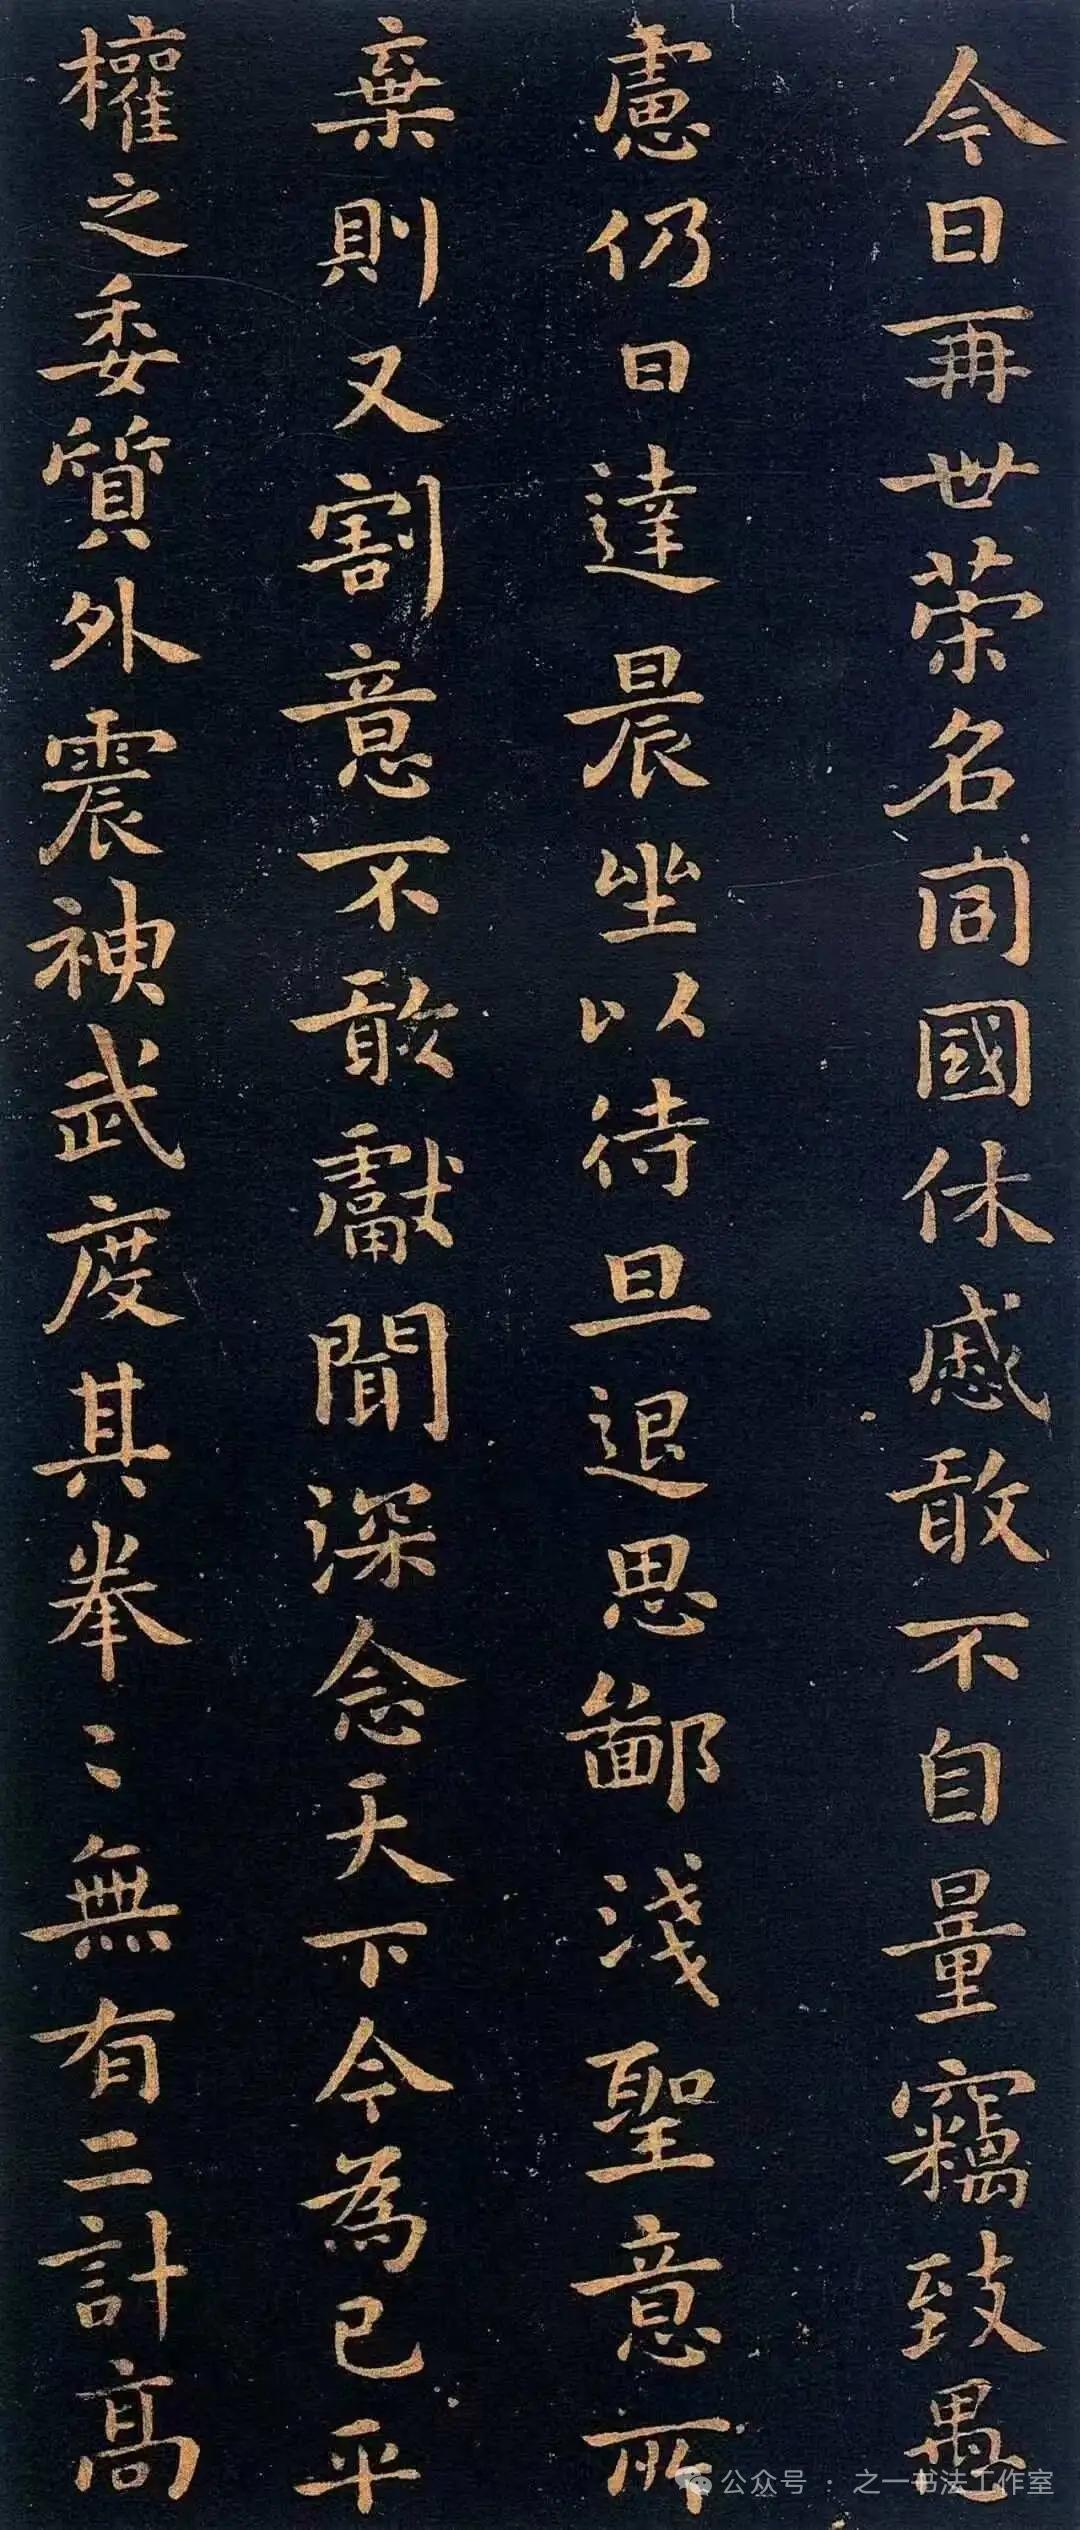 今日再世荣名同國休慼敢不自量竊致愚
慮仍日達晨坐以待旦退思鄙淺聖意所
棄則又割意不敢獻聞深念天下今為已平
權之委質外震神武度其拳〻無有二計高
公众号：之一书法工作室